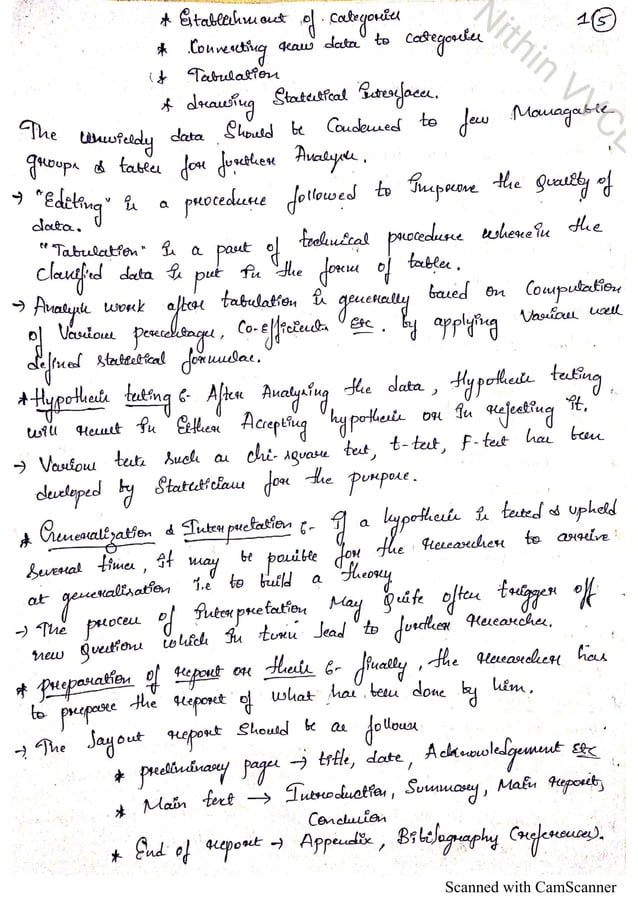 * Establishment of categories
15
* Converting raw data to categories
* Tabulation
* drawing Statistical Interfaces.
Nithin VVCE
The unwieldy data Should be Condensed to few Managable
groups & tables for further Analysis.
→ "Editing" is a procedure followed to Improve the Quality of
data.
"Tabulation" is a part of technical procedure wherein the
Classified data is put in the form of tables.
→ Analysis work after tabulation is generally based on Computation
of Various percentages, Co-efficients etc. by applying Various well
defined statistical formulae.
* Hypothesis testing :- After Analysing the data, Hypothesis testing
will result in Either Accepting hypothesis or in rejecting it.
→ Various tests such as chi-square test, t-test, F-test has been
developed by Statisticians for the purpose.
* Generalization & Interpretation :- If a hypothesis is tested & upheld
Several times, it may be possible for the researcher to arrive
at generalisation i.e to build a theory
→ The process of Interpretation May Quite often trigger off
new questions which in turn lead to further researches.
* preparation of report or thesis :- finally, the researcher has
to prepare the report of what has been done by him.
→ The layout report Should be as follows
* preliminary pages → title, date, Acknowledgement etc
* Main text → Introduction, Summary, Main report,
Conclusion
* End of report → Appendix, Bibilography (references).
Scanned with CamScanner